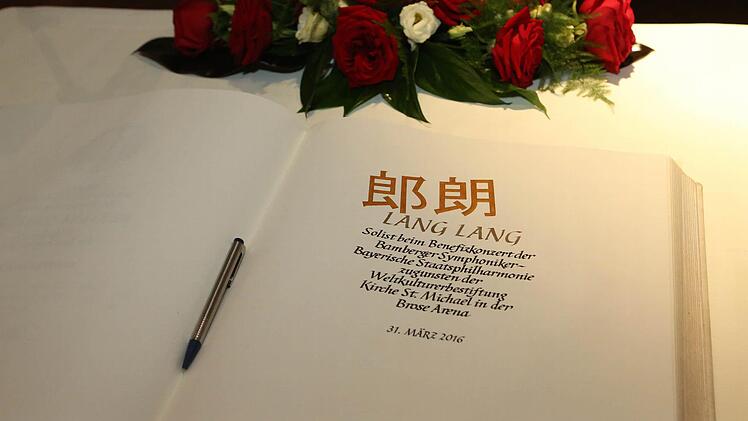 郎朗
LANG LANG
Solist beim Benefizkonzert der
Bamberger Symphoniker –
Bayerische Staatsphilharmonie
zugunsten der
Weltkulturerbestiftung
Kirche St. Michael in der
Brose Arena
31. MÄRZ 2016